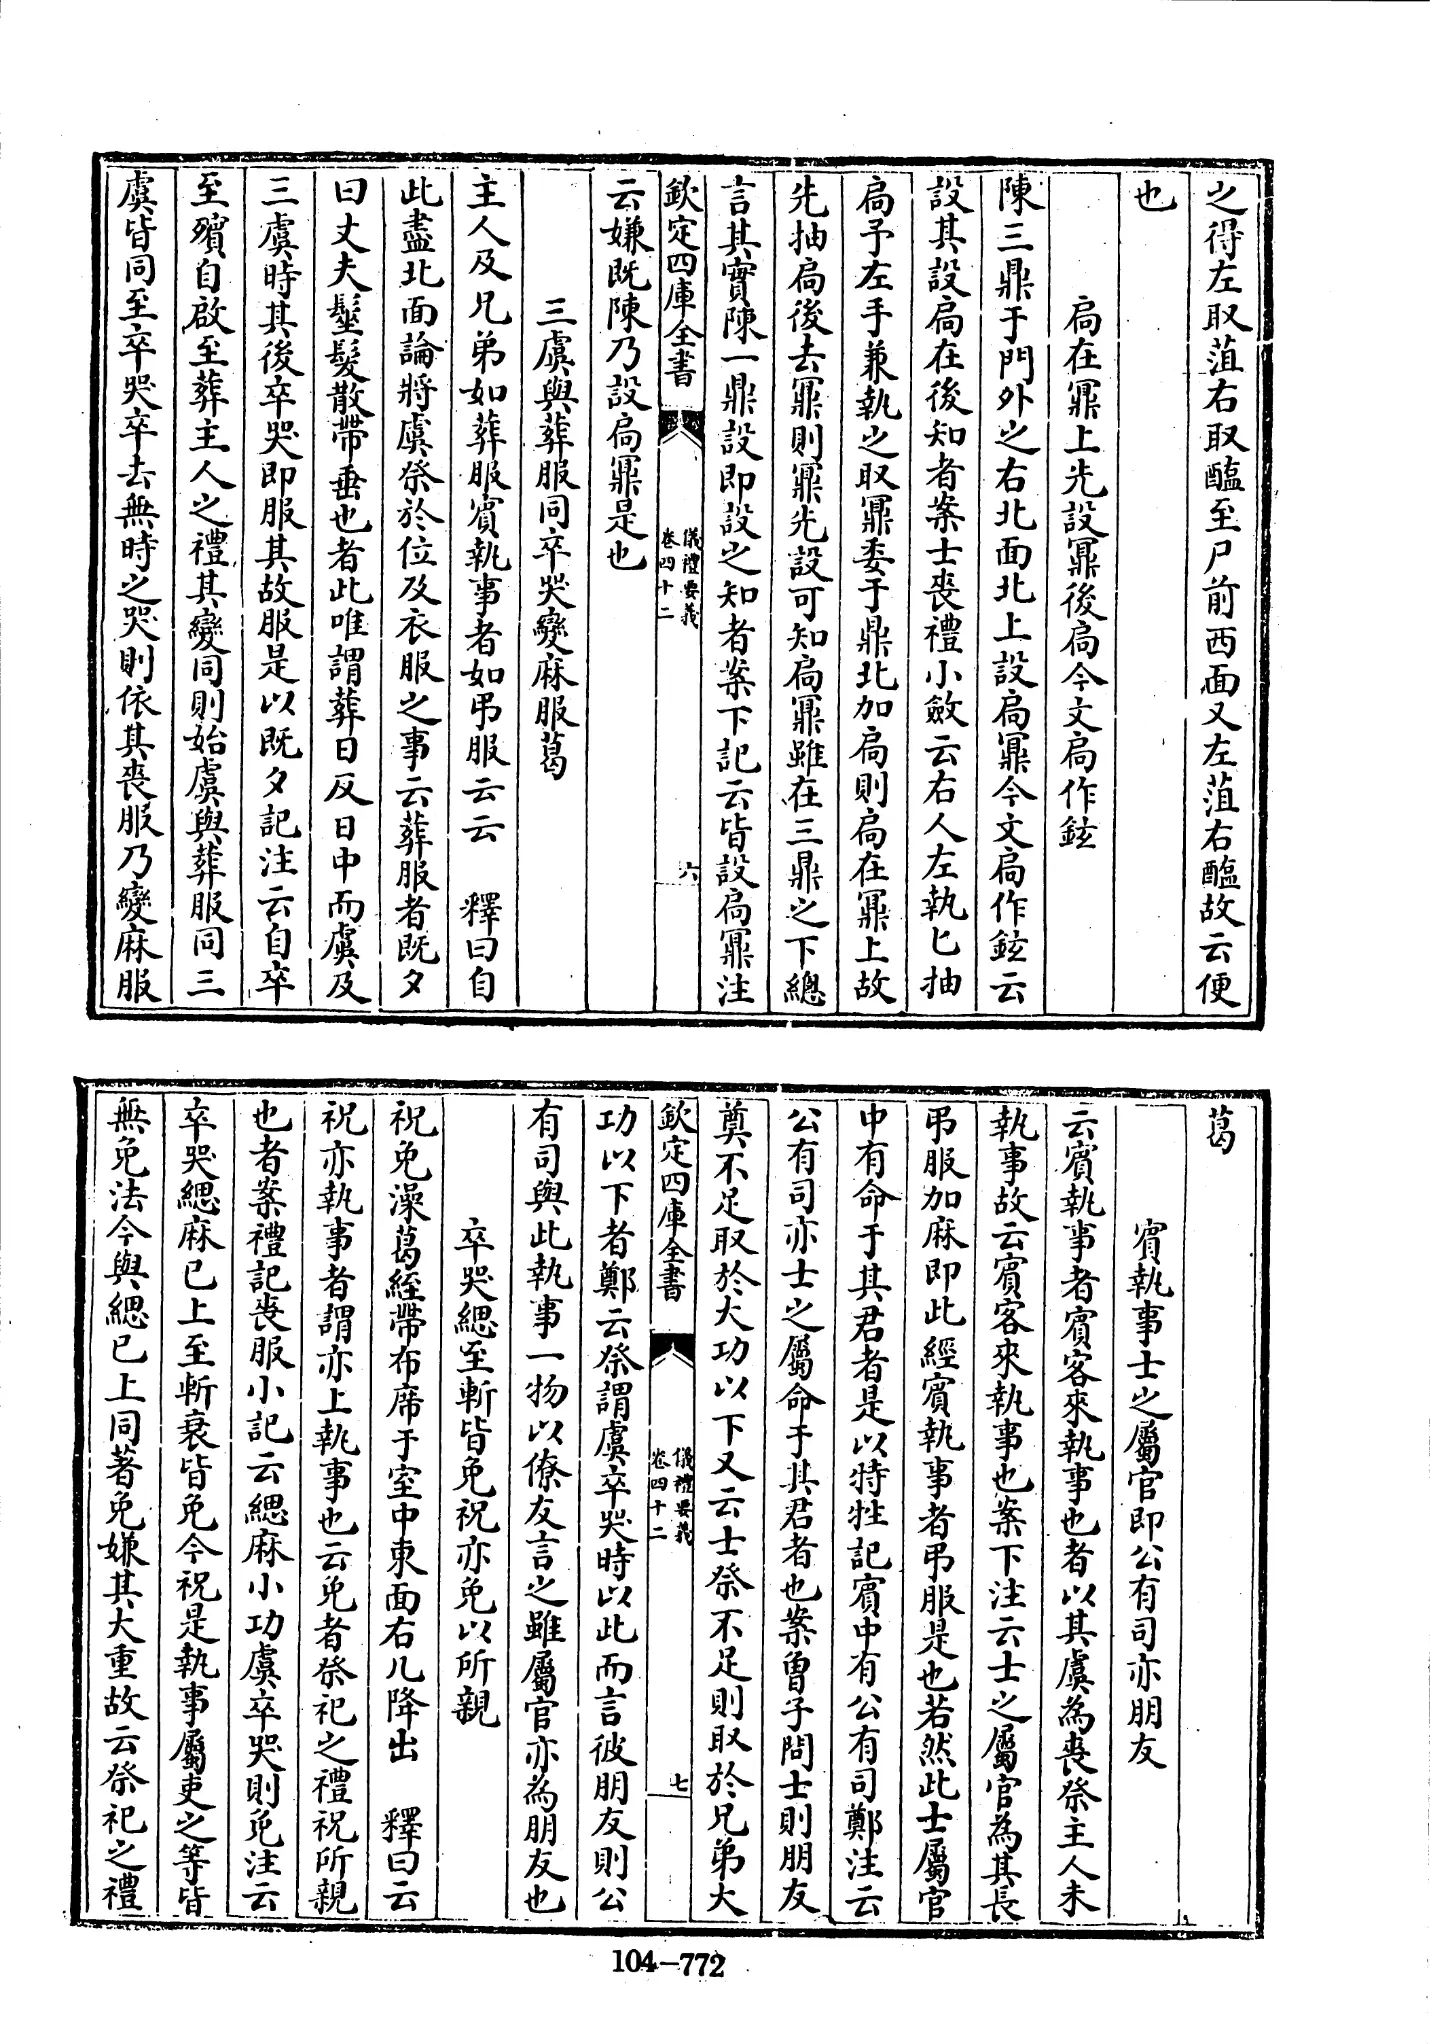 之得左取菹右取醢至尸前西面又左菹右醢故云便
也
扃在鼏上先設鼏後扃今文扃作鉉
陳三鼎于門外之右北面北上設扃鼏今文扃作鉉云
設其設扃在後知者案士喪禮小斂云右人左執匕抽
扃予左手兼執之取鼏委于鼎北加扃則扃在鼏上故
先抽扃後去鼏則鼏先設可知扃鼏雖在三鼎之下總
言其實陳一鼎設即設之知者案下記云皆設扃鼏注
欽定四庫全書
儀禮要義
卷四十二
六
云嫌既陳乃設扃鼏是也
三虞與葬服同卒哭變麻服葛
主人及兄弟如葬服賓執事者如弔服云云 釋曰自
此盡北面論將虞祭於位及衣服之事云葬服者既夕
曰丈夫髽髮散帶垂也者此唯謂葬日反日中而虞及
三虞時其後卒哭即服其故服是以既夕記注云自卒
至殯自啟至葬主人之禮其變同則始虞與葬服同三
虞皆同至卒哭卒去無時之哭則依其喪服乃變麻服
葛
賓執事士之屬官即公有司亦朋友
云賓執事者賓客來執事也者以其虞為喪祭主人未
執事故云賓客來執事也案下注云士之屬官為其長
弔服加麻即此經賓執事者弔服是也若然此士屬官
中有命于其君者是以特牲記賓中有公有司鄭注云
公有司亦士之屬命于其君者也案曾子問士則朋友
奠不足取於大功以下又云士祭不足則取於兄弟大
欽定四庫全書
儀禮要義
卷四十二
七
功以下者鄭云祭謂虞卒哭時以此而言彼朋友則公
有司與此執事一物以僚友言之雖屬官亦為朋友也
卒哭緦至斬皆免祝亦免以所親
祝免澡葛絰帶布席于室中東面右几降出 釋曰云
祝亦執事者謂亦上執事也云免者祭祀之禮祝所親
也者案禮記喪服小記云緦麻小功虞卒哭則免注云
卒哭緦麻已上至斬衰皆免今祝是執事屬吏之等皆
無免法今與緦已上同著免嫌其大重故云祭祀之禮
104-772